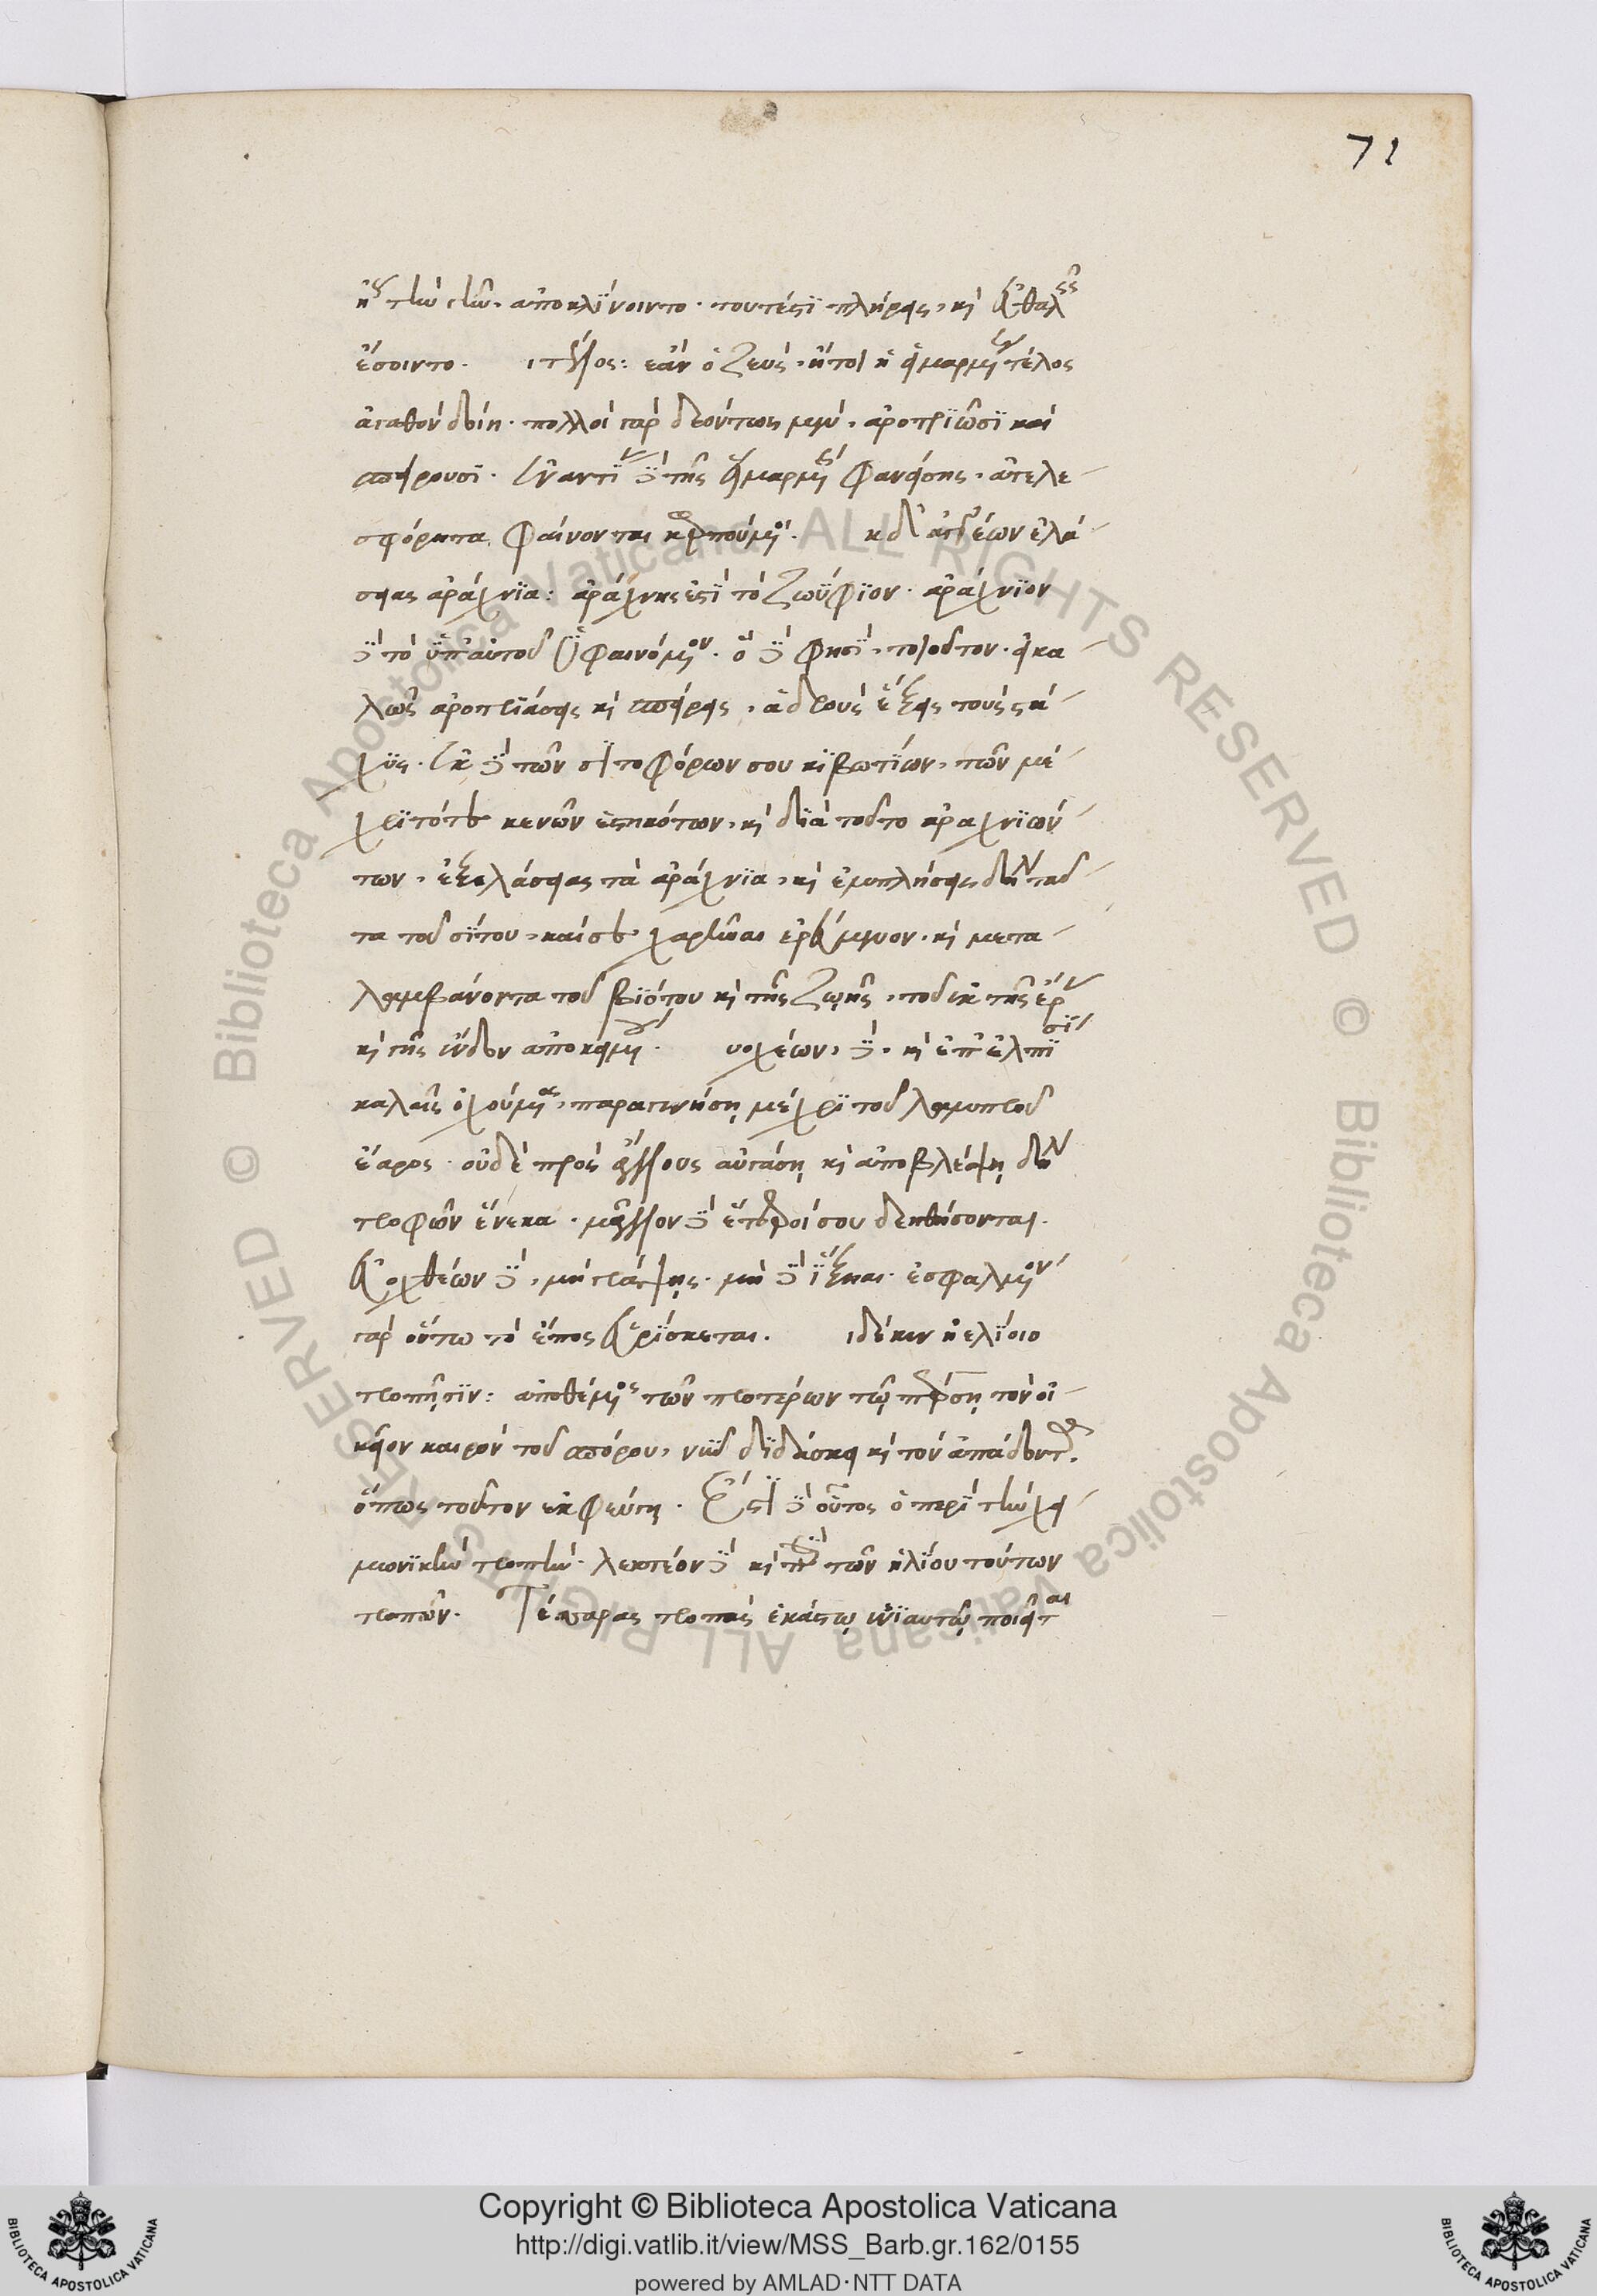 71
κατὰ τὴν γῆν. ἀποκλίνοιντο. τουτέστι πλήρεις, καὶ εὐθαλεῖς
ἔσοιντο. ἰ τέλος: ἐὰν ὁ Ζεὺς, ἤτοι ἡ εἱμαρμένη τέλος
ἀγαθὸν δοίη. πολλοὶ γὰρ δεόντως μὲν, ἀροτριῶσι καὶ
σπείρουσι. ἐναντίας δὲ τῆς εἱμαρμένης φανείσης, ἀτελε-
σφόρητα φαίνονται
σειας ἀράχνια: ἀράχνης ἐστὶ τὸ ζωΰφιον. ἀράχνιον
δὲ τὸ ὑπ' αὐτοῦ ὑφαινόμενον. ὃ δὲ φησὶ, τοιοῦτον. εἰ κα-
λῶς ἀροτριάσεις καὶ σπείρεις, ἁδροὺς ἕξεις τοὺς στά-
χυς. ἐκ δὲ τῶν σιτοφόρων σου κιβωτίων, τῶν μέ-
χρι τότε κενῶν ἑστηκότων, καὶ διὰ τοῦτο ἀραχνιών-
των, ἐξελάσειας τὰ ἀράχνια, καὶ ἐμπλήσεις δὴν ταῦ-
τα τοῦ σίτου, καί σε χαρῆναι
λαμβάνοντα τοῦ βιότου καὶ τῆς ζωῆς, τοῦ ἐκ τῆς
καὶ τῆς ἔνδον ἀποκειμένης. υοχέων, δὲ. καὶ ἐπ' ἐλπίσι
καλαῖς ὀχούμενος, παραγενήσῃ μέχρι τοῦ λαμπροῦ
ἔαρος. οὐδὲ πρὸς ἄλλους αὐγάσῃ καὶ ἀποβλέψῃ δὴν
τροφῶν ἕνεκα. μᾶλλον δὲ ἕτεροί σου δεηθήσονται.
εὐοχθέων δὲ, μὴ γράψῃς. μὴ δὲ ἵξεαι. ἐσφαλμένον
γὰρ οὕτω τὸ ἔπος εὑρίσκεται. ιδέκεν ἠελίοιο
τροπῇσιν: ἀποθέμενος τῶν προτέρων τῷ πέρσῃ τὸν οἰ-
κεῖον καιρὸν τοῦ σπόρου, νῦν διδάσκει καὶ τὸν ἀπάδοντα.
ὅπως τοῦτον ἐκφεύγῃ. Ἔστι δὲ οὗτος ὁ περὶ τὴν χει-
μερινὴν τροπὴν. λεκτέον δὲ καὶ περὶ τῶν ἡλίου τούτων
τροπῶν. Τέσσαρας τροπὰς ἑκάστῳ ἐνιαυτῷ ποιεῖται
Copyright © Biblioteca Apostolica Vaticana
http://digi.vatlib.it/view/MSS_Barb.gr.162/0155
powered by AMLAD·NTT DATA